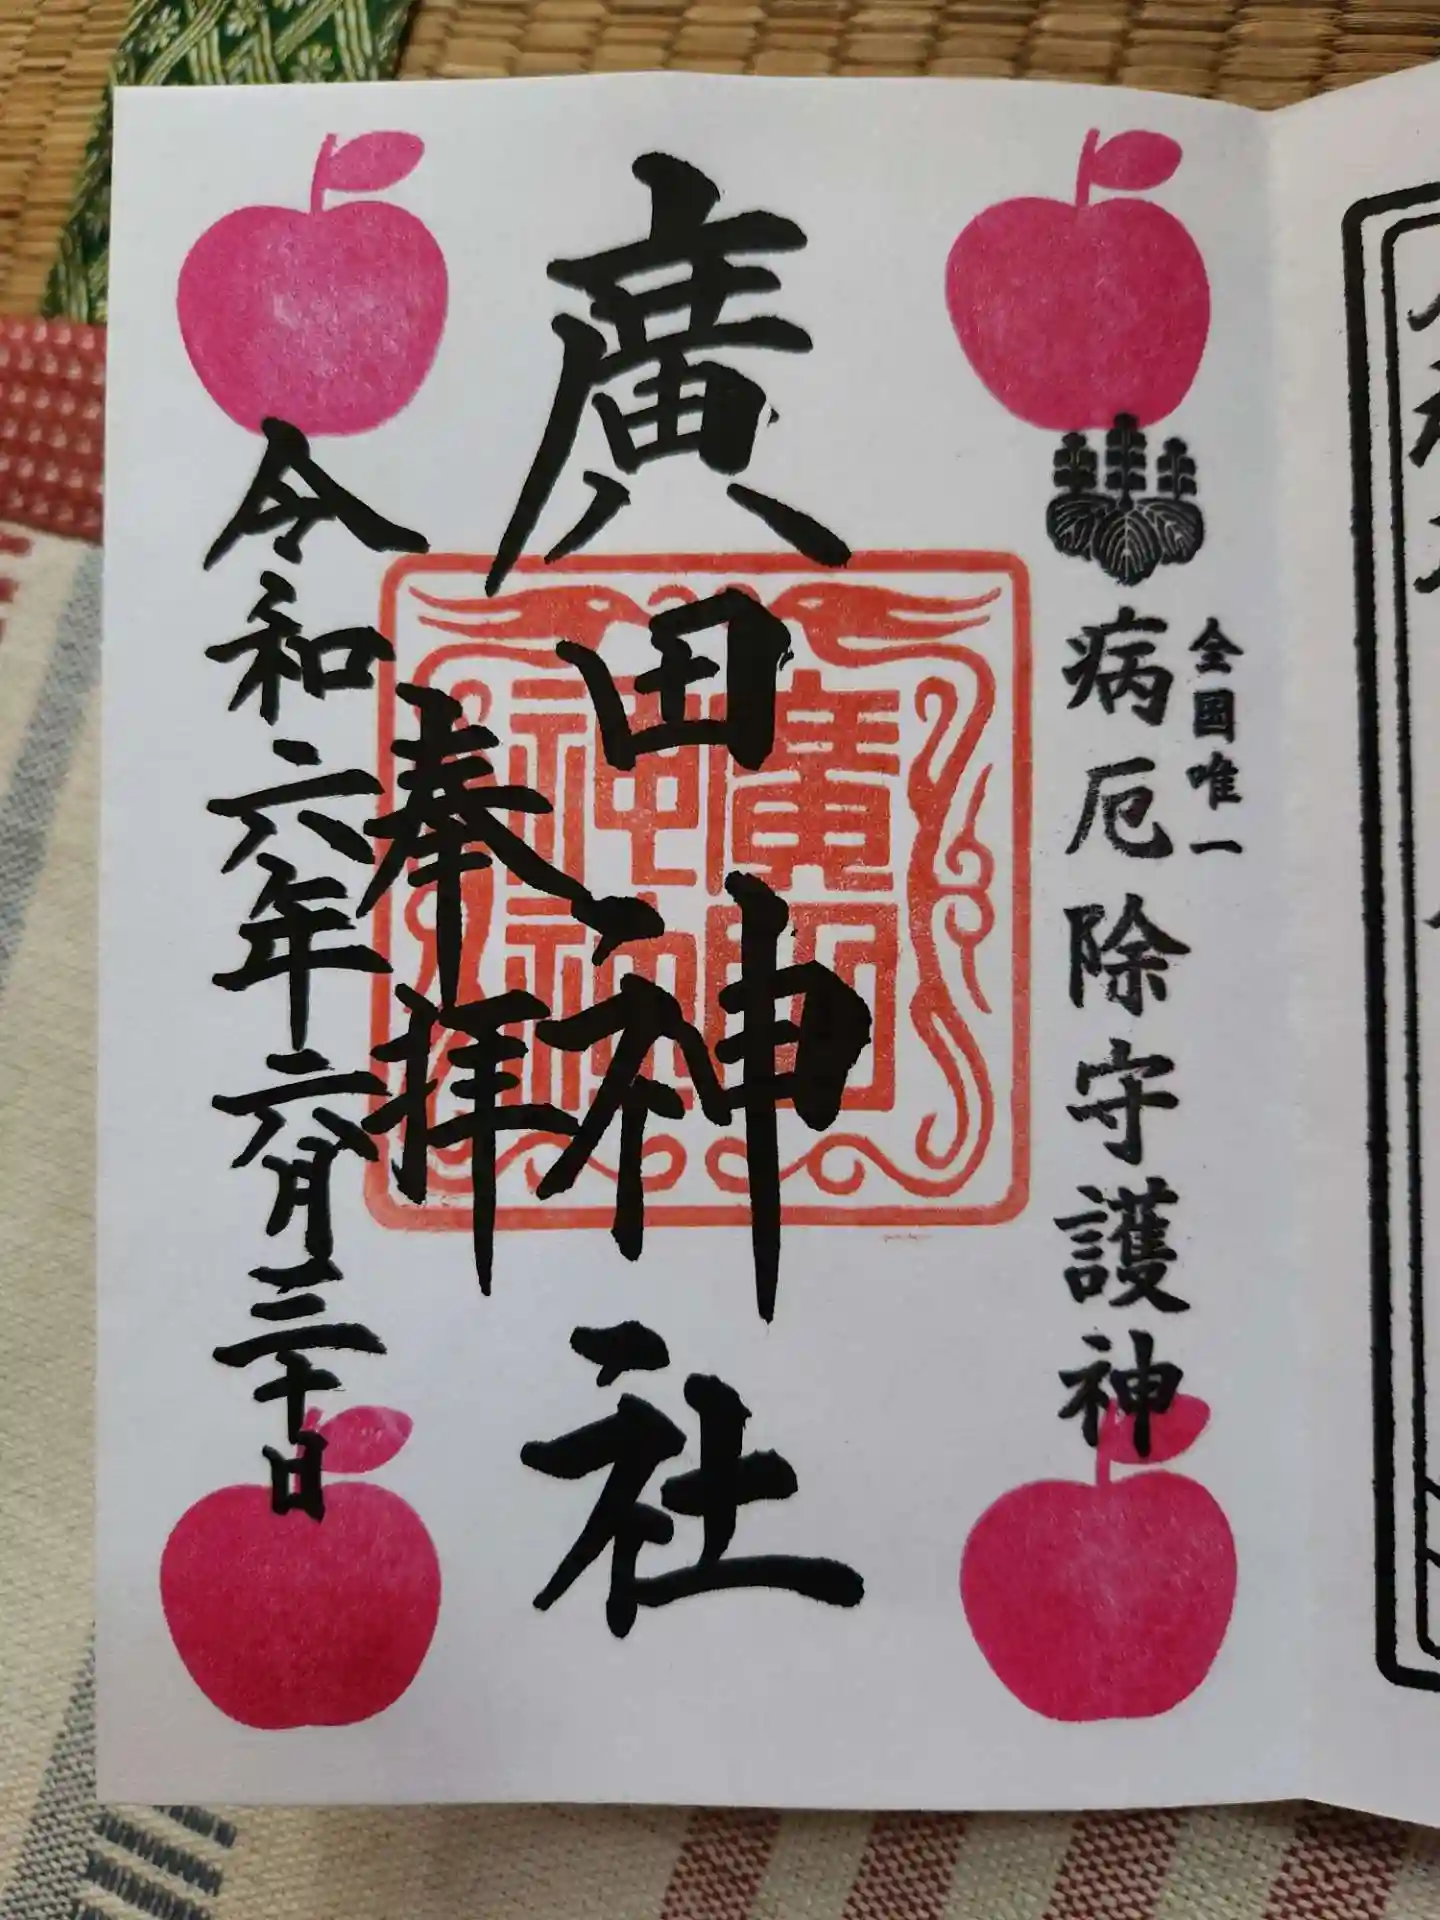 全国唯一
病厄除守護神
廣田神社
奉拝
令和六年六月三十日
廣田
神社